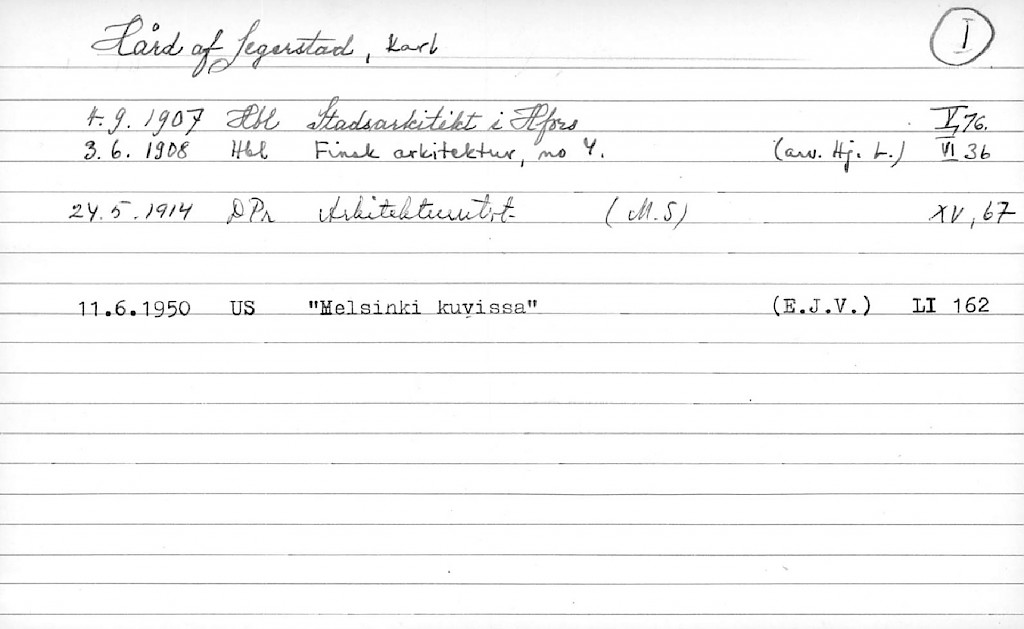 Hård af Segerstad, Karl I
4.9.1907 Hbl Stadsarkitekt i Hfors V, 76.
3.6.1908 Hbl Finsk arkitektur, no 4. (anv. Hj. L.) VI 36
24.5.1914 DPr Arkitekturutst. (M.S) XV, 67
11.6.1950 US "Helsinki kuvissa" (E.J.V.) LI 162